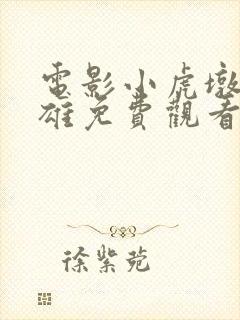 電影小虎墩
雄免費觀看
徐紫菀